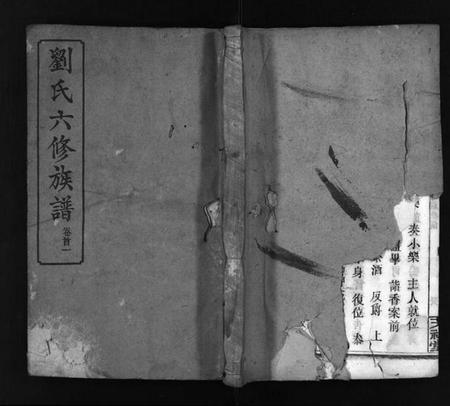 劉氏六修族譜
卷首一
奏小樂 主人就位
畢 詣香案前
酒 反爵 上
身 復位 叅